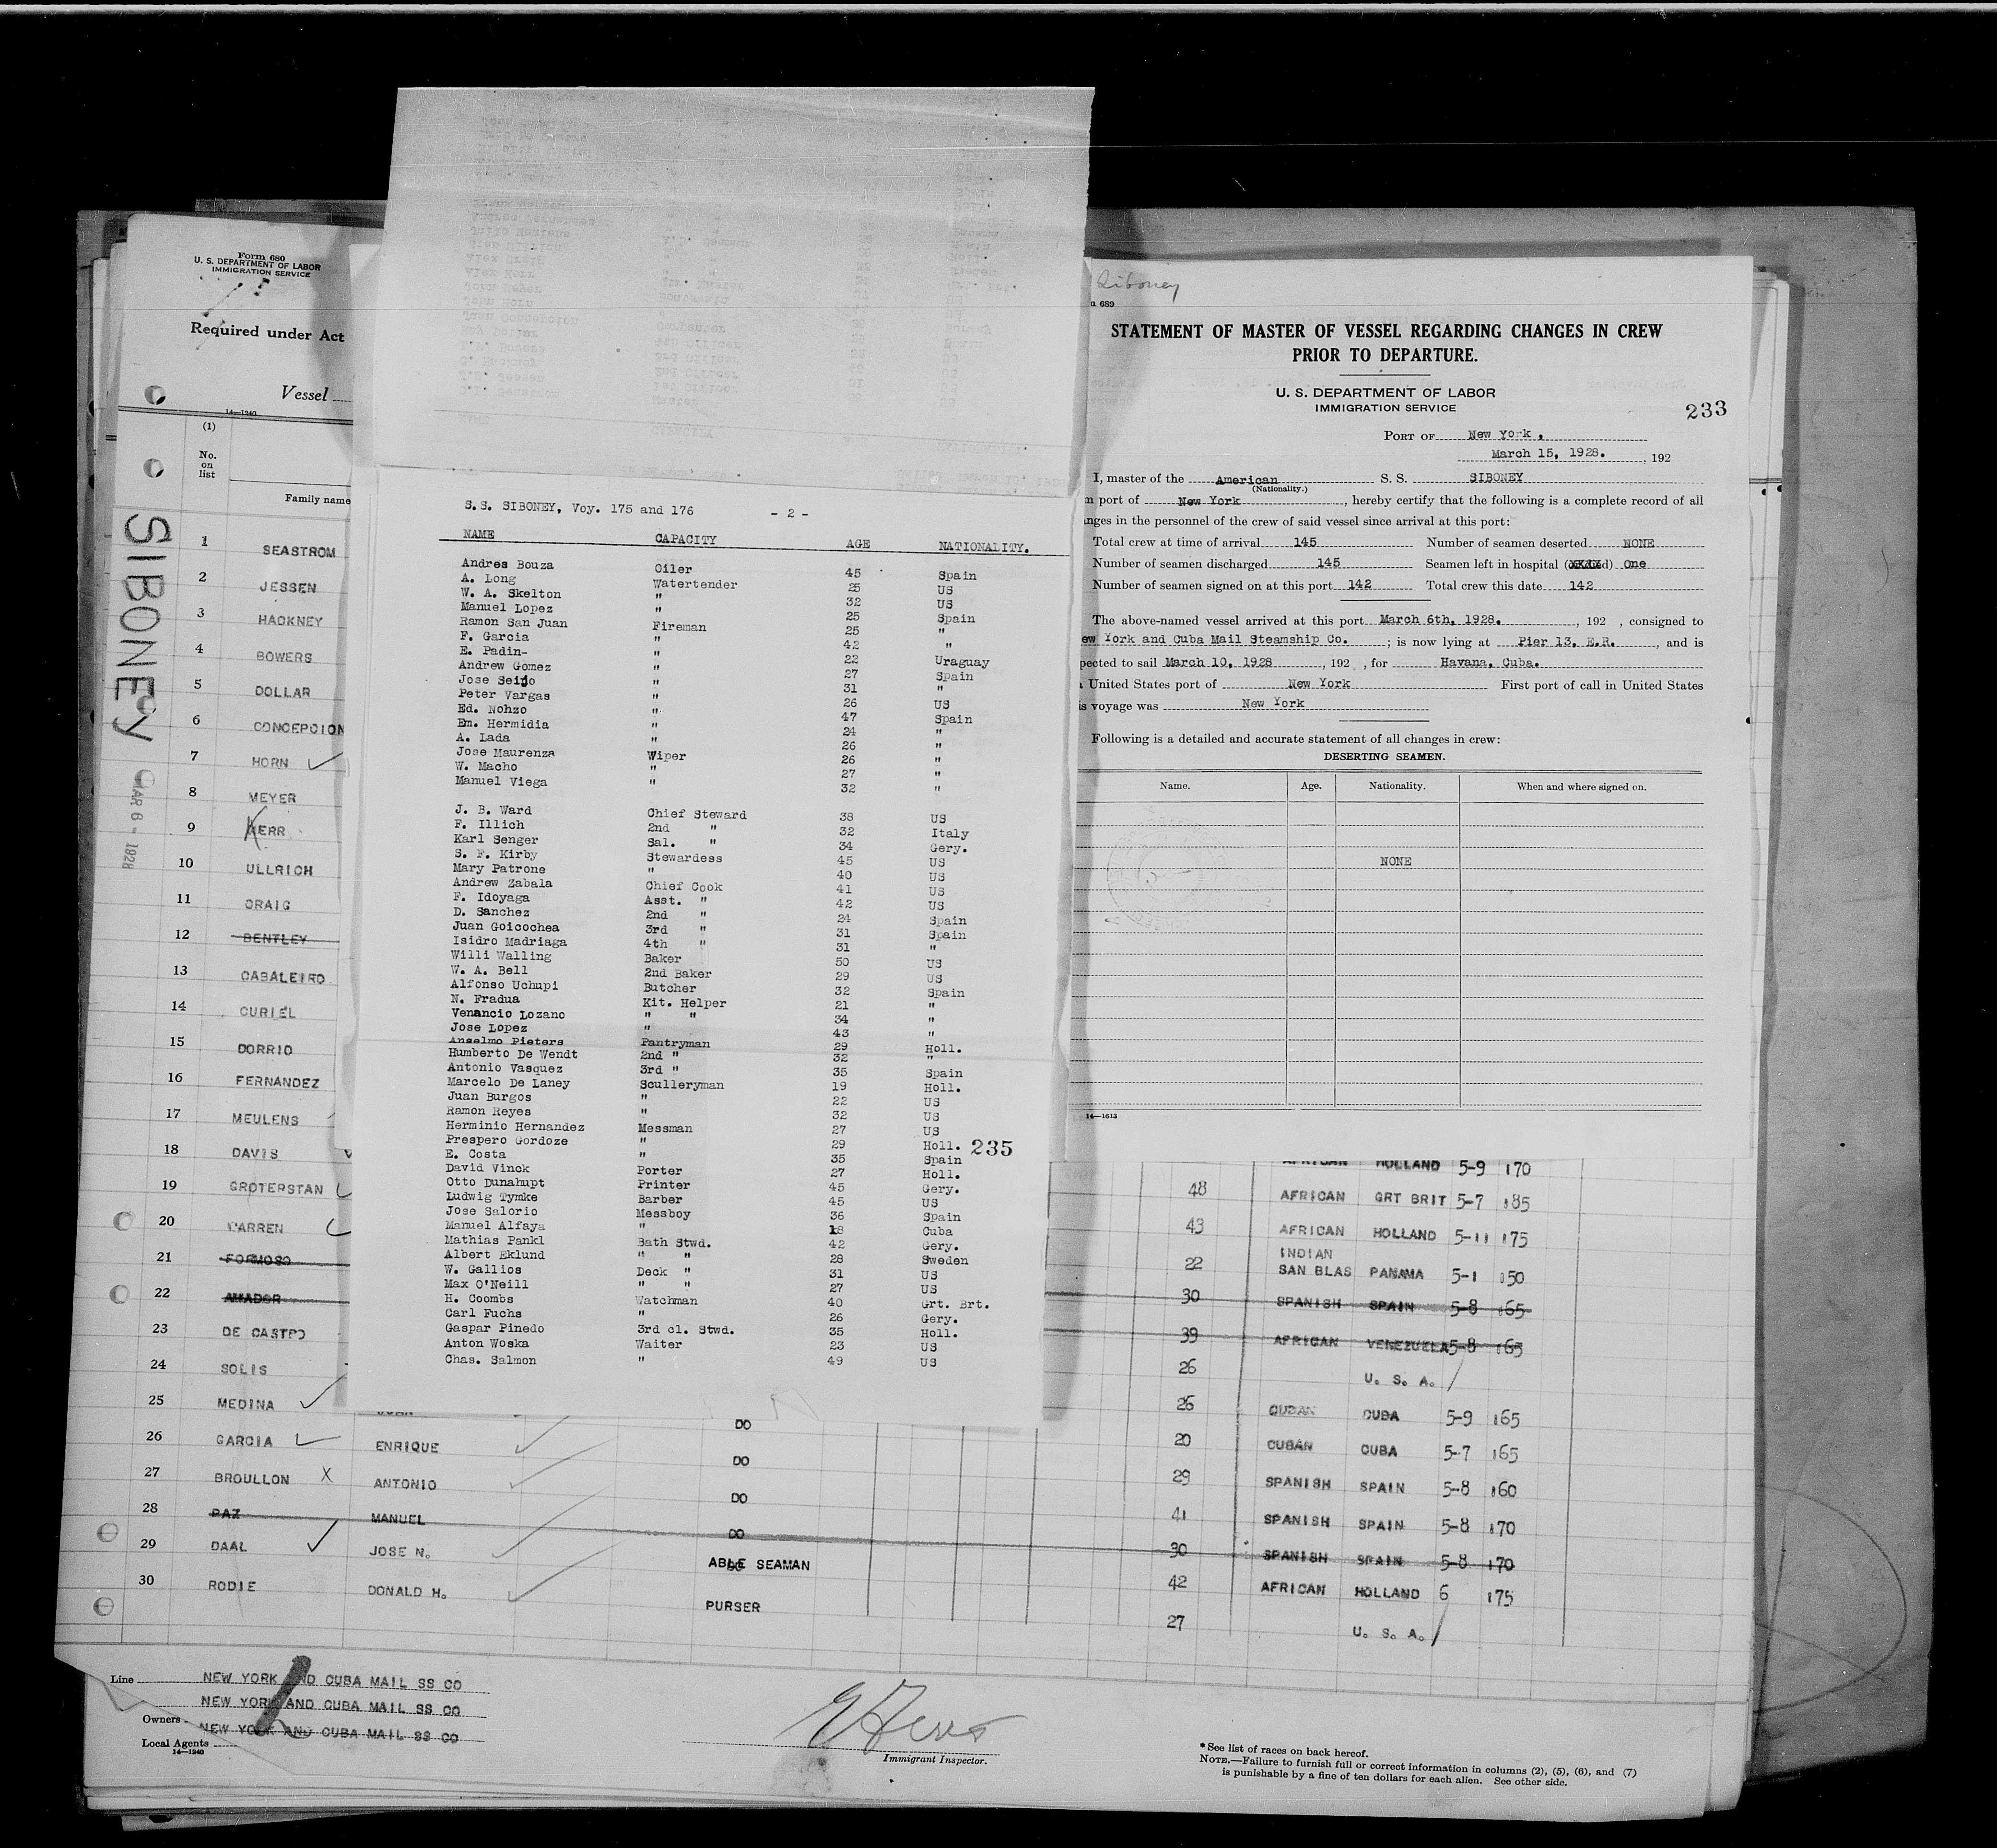 Form 680
U. S. DEPARTMENT OF LABOR
IMMIGRATION SERVICE
Required under Act
Vessel
14—1240
(1)
No.
on
list
Family name
SIBONEY
MAR 6 - 1928
1 SEASTROM
2 JESSEN
3 HACKNEY
4 BOWERS
5 DOLLAR
6 CONCEPCION
7 HORN
8 MEYER
9 KERR
10 ULLRICH
11 CRAIG
12 BENTLEY
13 CABALEIRO
14 CURIEL
15 DORRIO
16 FERNANDEZ
17 MEULENS
18 DAVIS
19 GROTERSTAN
20 WARREN
21 FORMOSO
22 AMADOR
23 DE CASTRO
24 SOLIS
25 MEDINA
26 GARCIA ENRIQUE
27 BROULLON X ANTONIO
28 PAZ MANUEL
29 DAAL JOSE N.
30 RODIE DONALD H.
DO
DO
DO
DO
ABLE SEAMAN
PURSER
HOLLAND 5-9 170
48 AFRICAN GRT BRIT 5-7 185
43 AFRICAN HOLLAND 5-11 175
INDIAN
22 SAN BLAS PANAMA 5-1 150
30 SPANISH SPAIN 5-8 165
39 AFRICAN VENEZUELA 5-8 165
26 U. S. A.
26 CUBAN CUBA 5-9 165
20 CUBAN CUBA 5-7 165
29 SPANISH SPAIN 5-8 160
41 SPANISH SPAIN 5-8 170
30 SPANISH SPAIN 5-8 170
42 AFRICAN HOLLAND 6 175
27 U. S. A.
Line NEW YORK AND CUBA MAIL SS CO
Owners NEW YORK AND CUBA MAIL SS CO
Local Agents NEW YORK AND CUBA MAIL SS CO
14—1240
Immigrant Inspector.
*See list of races on back hereof.
NOTE.—Failure to furnish full or correct information in columns (2), (5), (6), and (7)
is punishable by a fine of ten dollars for each alien. See other side.
S.S. SIBONEY, Voy. 175 and 176 - 2 -
NAME CAPACITY AGE NATIONALITY.
Andres Bouza Oiler 45 Spain
A. Long Watertender 25 US
W. A. Skelton " 32 US
Manuel Lopez " 25 Spain
Ramon San Juan Fireman 25 "
F. Garcia " 42 "
E. Padin- " 22 Uraguay
Andrew Gomez " 27 Spain
Jose Seijo " 31 "
Peter Vargas " 26 US
Ed. Nohzo " 47 Spain
Em. Hermidia " 24 "
A. Lada " 26 "
Jose Maurenza Wiper 26 "
W. Macho " 27 "
Manuel Viega " 32 "
J. B. Ward Chief Steward 38 US
F. Illich 2nd " 32 Italy
Karl Senger Sal. " 34 Gery.
S. F. Kirby Stewardess 45 US
Mary Patrone " 40 US
Andrew Zabala Chief Cook 41 US
F. Idoyaga Asst. " 42 US
D. Sanchez 2nd " 24 Spain
Juan Goicochea 3rd " 31 Spain
Isidro Madriaga 4th " 31 "
Willi Walling Baker 50 US
W. A. Bell 2nd Baker 29 US
Alfonso Uchupi Butcher 32 Spain
N. Fradua Kit. Helper 21 "
Venancio Lozano " " 34 "
Jose Lopez " 43 "
Anselmo Pieters Pantryman 29 Holl.
Humberto De Wendt 2nd " 32 "
Antonio Vasquez 3rd " 35 Spain
Marcelo De Laney Sculleryman 19 Holl.
Juan Burgos " 22 US
Ramon Reyes " 32 US
Herminio Hernandez Messman 27 US
Prespero Gordoze " 29 Holl. 235
E. Costa " 35 Spain
David Vinck Porter 27 Holl.
Otto Dunahupt Printer 45 Gery.
Ludwig Tymke Barber 45 US
Jose Salorio Messboy 36 Spain
Manuel Alfaya " 18 Cuba
Mathias Pankl Bath Stwd. 42 Gery.
Albert Eklund " " 28 Sweden
W. Gallios Deck " 31 US
Max O'Neill " " 27 US
H. Coombs Watchman 40 Grt. Brt.
Carl Fuchs " 26 Gery.
Gaspar Pinedo 3rd cl. Stwd. 35 Holl.
Anton Woska Waiter 23 US
Chas. Salmon " 49 US
Siboney
689
STATEMENT OF MASTER OF VESSEL REGARDING CHANGES IN CREW
PRIOR TO DEPARTURE.
U. S. DEPARTMENT OF LABOR
IMMIGRATION SERVICE
233
PORT OF New York,
March 15, 1928. , 192
I, master of the American S. S. SIBONEY
(Nationality.)
port of New York , hereby certify that the following is a complete record of all
nges in the personnel of the crew of said vessel since arrival at this port:
Total crew at time of arrival 145 Number of seamen deserted NONE
Number of seamen discharged 145 Seamen left in hospital One
Number of seamen signed on at this port 142 Total crew this date 142
The above-named vessel arrived at this port March 6th, 1928. , 192 , consigned to
ew York and Cuba Mail Steamship Co. ; is now lying at Pier 13, E.R. , and is
pected to sail March 10, 1928 , 192 , for Havana, Cuba.
United States port of New York First port of call in United States
is voyage was New York
Following is a detailed and accurate statement of all changes in crew:
DESERTING SEAMEN.
Name. Age. Nationality. When and where signed on.
NONE
14—1613